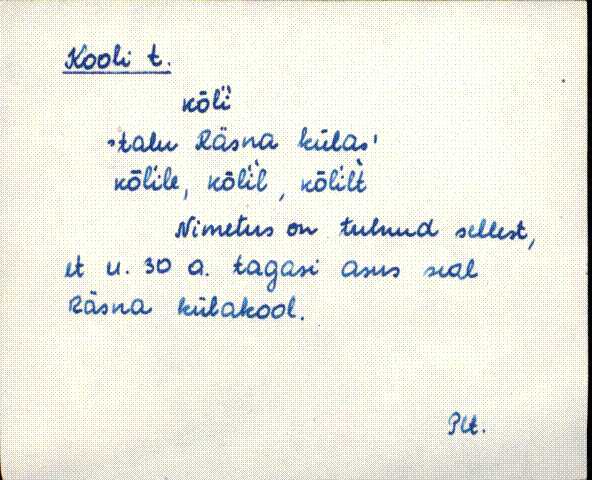 Kooli t.
kōl̀i
'talu Räsna külas'
kōl̀ile, kōl̀il, kōl̀ilt
Nimetus on tulnud sellest,
et u. 30 a. tagasi asus seal
Räsna külakool.
Plt.